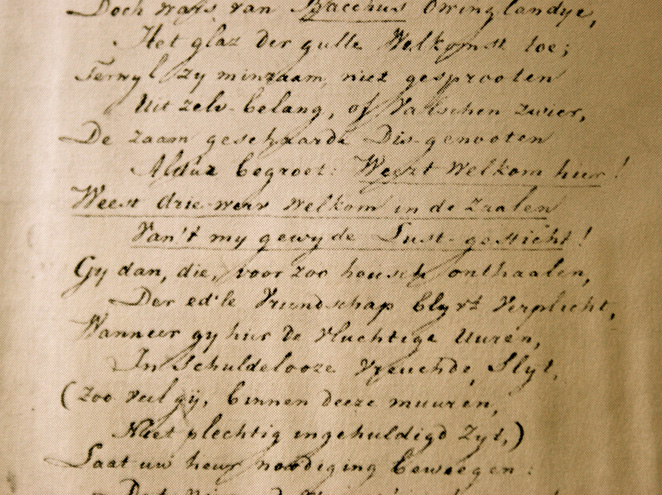 Doch van Bacchus
Het glas der gulle Welkomst toe;
Terwyl zy minzaam, niet gesprooten
Uit zelv-belang, of Valschen zwier,
De zaam geschaarde Dis-genooten
Aldus begroet: Weest Welkom hier!
Weest drie-werv welkom in de Zaalen
Van't my gewyde Lust-gesticht!
Gy dan, die, voor zoo heusch onthaalen,
Der ed'le Vriendschap blyvt Verplicht,
Wanneer gy hier de vluchtige Uuren,
In Schuldelooze Vreuchde, Slyt,
(Zoo veel gij, binnen deeze muuren,
Niet plechtig ingehuldigd Zyt,)
Laat uw heur noodiging beweegen: